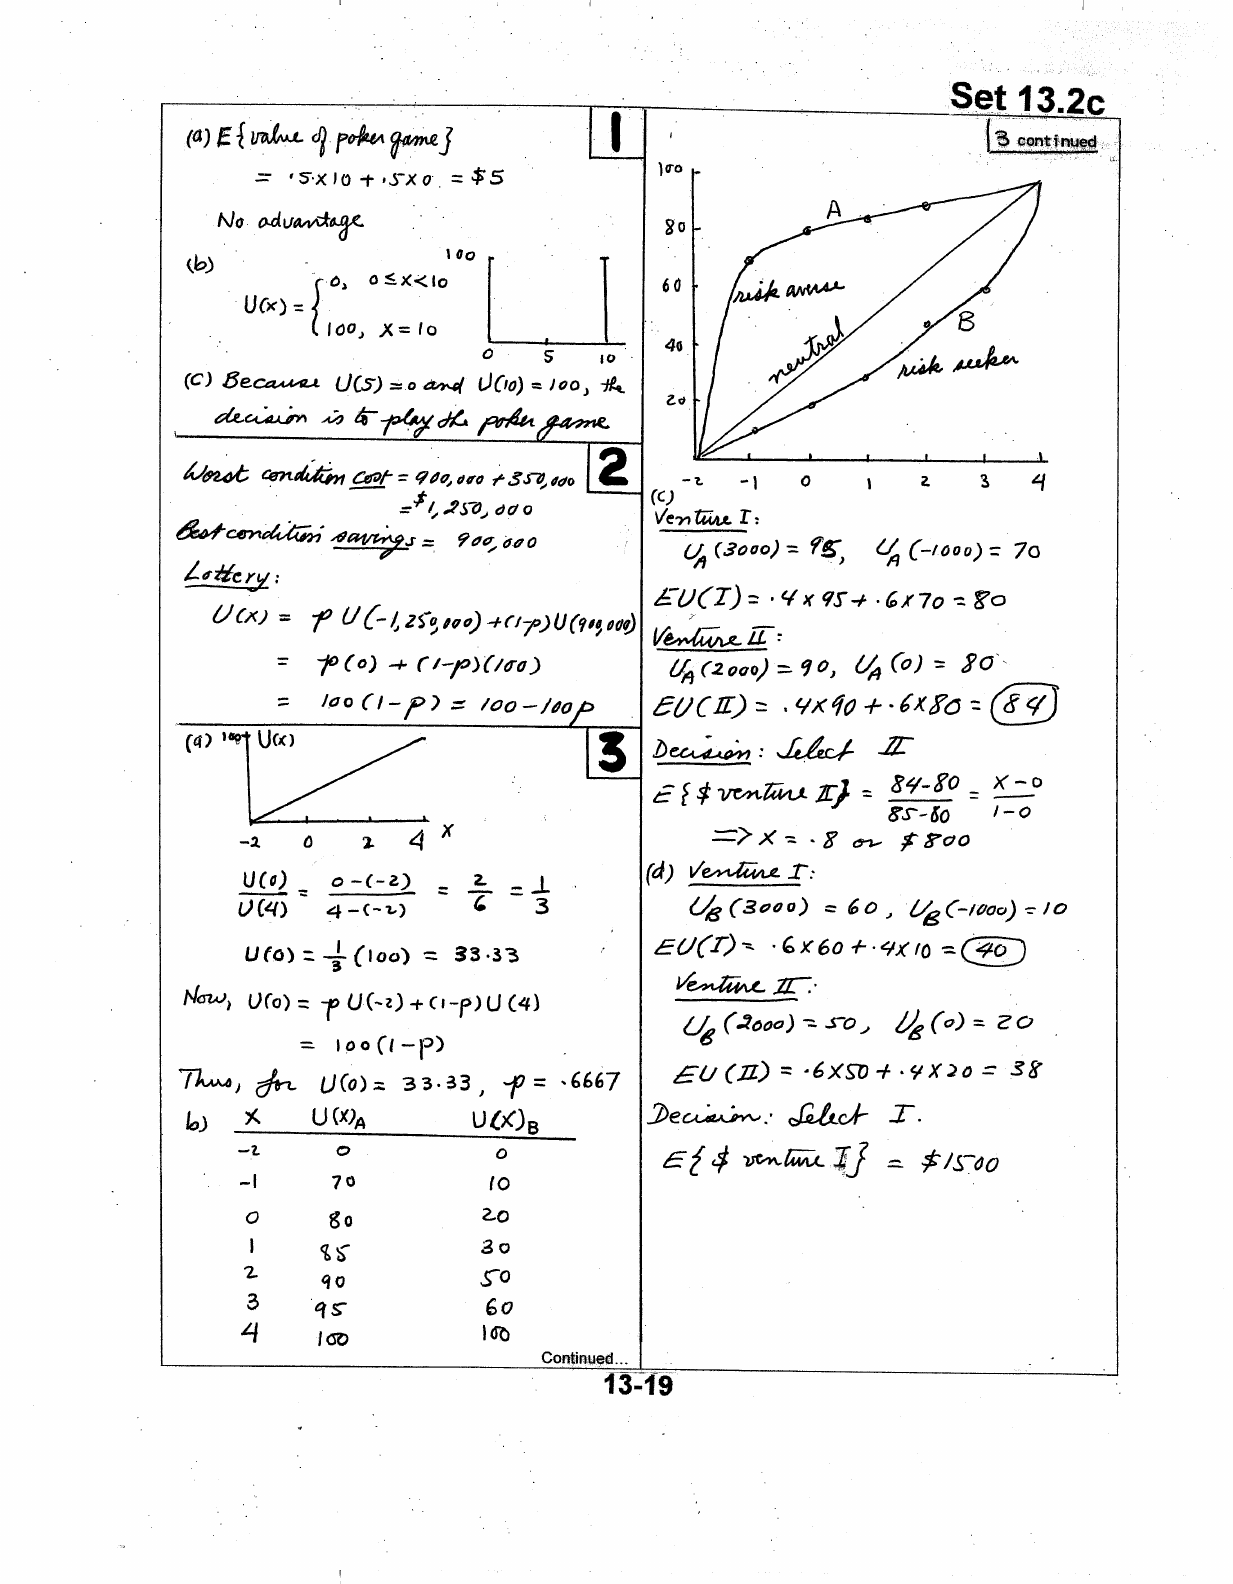 Set 13.2c
1
(a) E{value of poker game}
= .5×10 + .5×0 = $5
No advantage
(b)
U(x) = { 0, 0≤x<10
100, x=10
100
0 5 10
(c) Because U(5)=0 and U(10)=100, the
decision is to play the poker game
2
Worst condition cost = 900,000 + 350,000
=$1,250,000
Best condition savings = 900,000
Lottery:
U(x) = p U(-1,250,000)+(1-p)U(900,000)
= p(0) + (1-p)(100)
= 100(1-p) = 100-100p
3
(a) 100 U(x)
-2 0 2 4 x
U(0)/U(4) = 0-(-2)/4-(-2) = 2/6 = 1/3
U(0) = 1/3 (100) = 33.33
Now, U(0) = p U(-2)+(1-p)U(4)
= 100(1-p)
Thus, for U(0) = 33.33, p = .6667
b) x U(x)A U(x)B
-2 0 0
-1 70 10
0 80 20
1 85 30
2 90 50
3 95 60
4 100 100
Continued...
3 continued
100
80
60
40
20
A
risk averse
neutral
B
risk seeker
-2 -1 0 1 2 3 4
(c)
Venture I:
UA(3000) = 95, UA(-1000) = 70
EU(I) = .4×95+.6×70 = 80
Venture II:
UA(2000) = 90, UA(0) = 80
EU(II) = .4×90+.6×80 = 84
Decision: Select II
E{$ venture II} = 84-80/85-80 = x-0/1-0
=> x = .8 or $800
(d) Venture I:
UB(3000) = 60, UB(-1000) = 10
EU(I) = .6×60+.4×10 = 40
Venture II:
UB(2000) = 50, UB(0) = 20
EU(II) = .6×50+.4×20 = 38
Decision: Select I.
E{$ venture I} = $1500
13-19